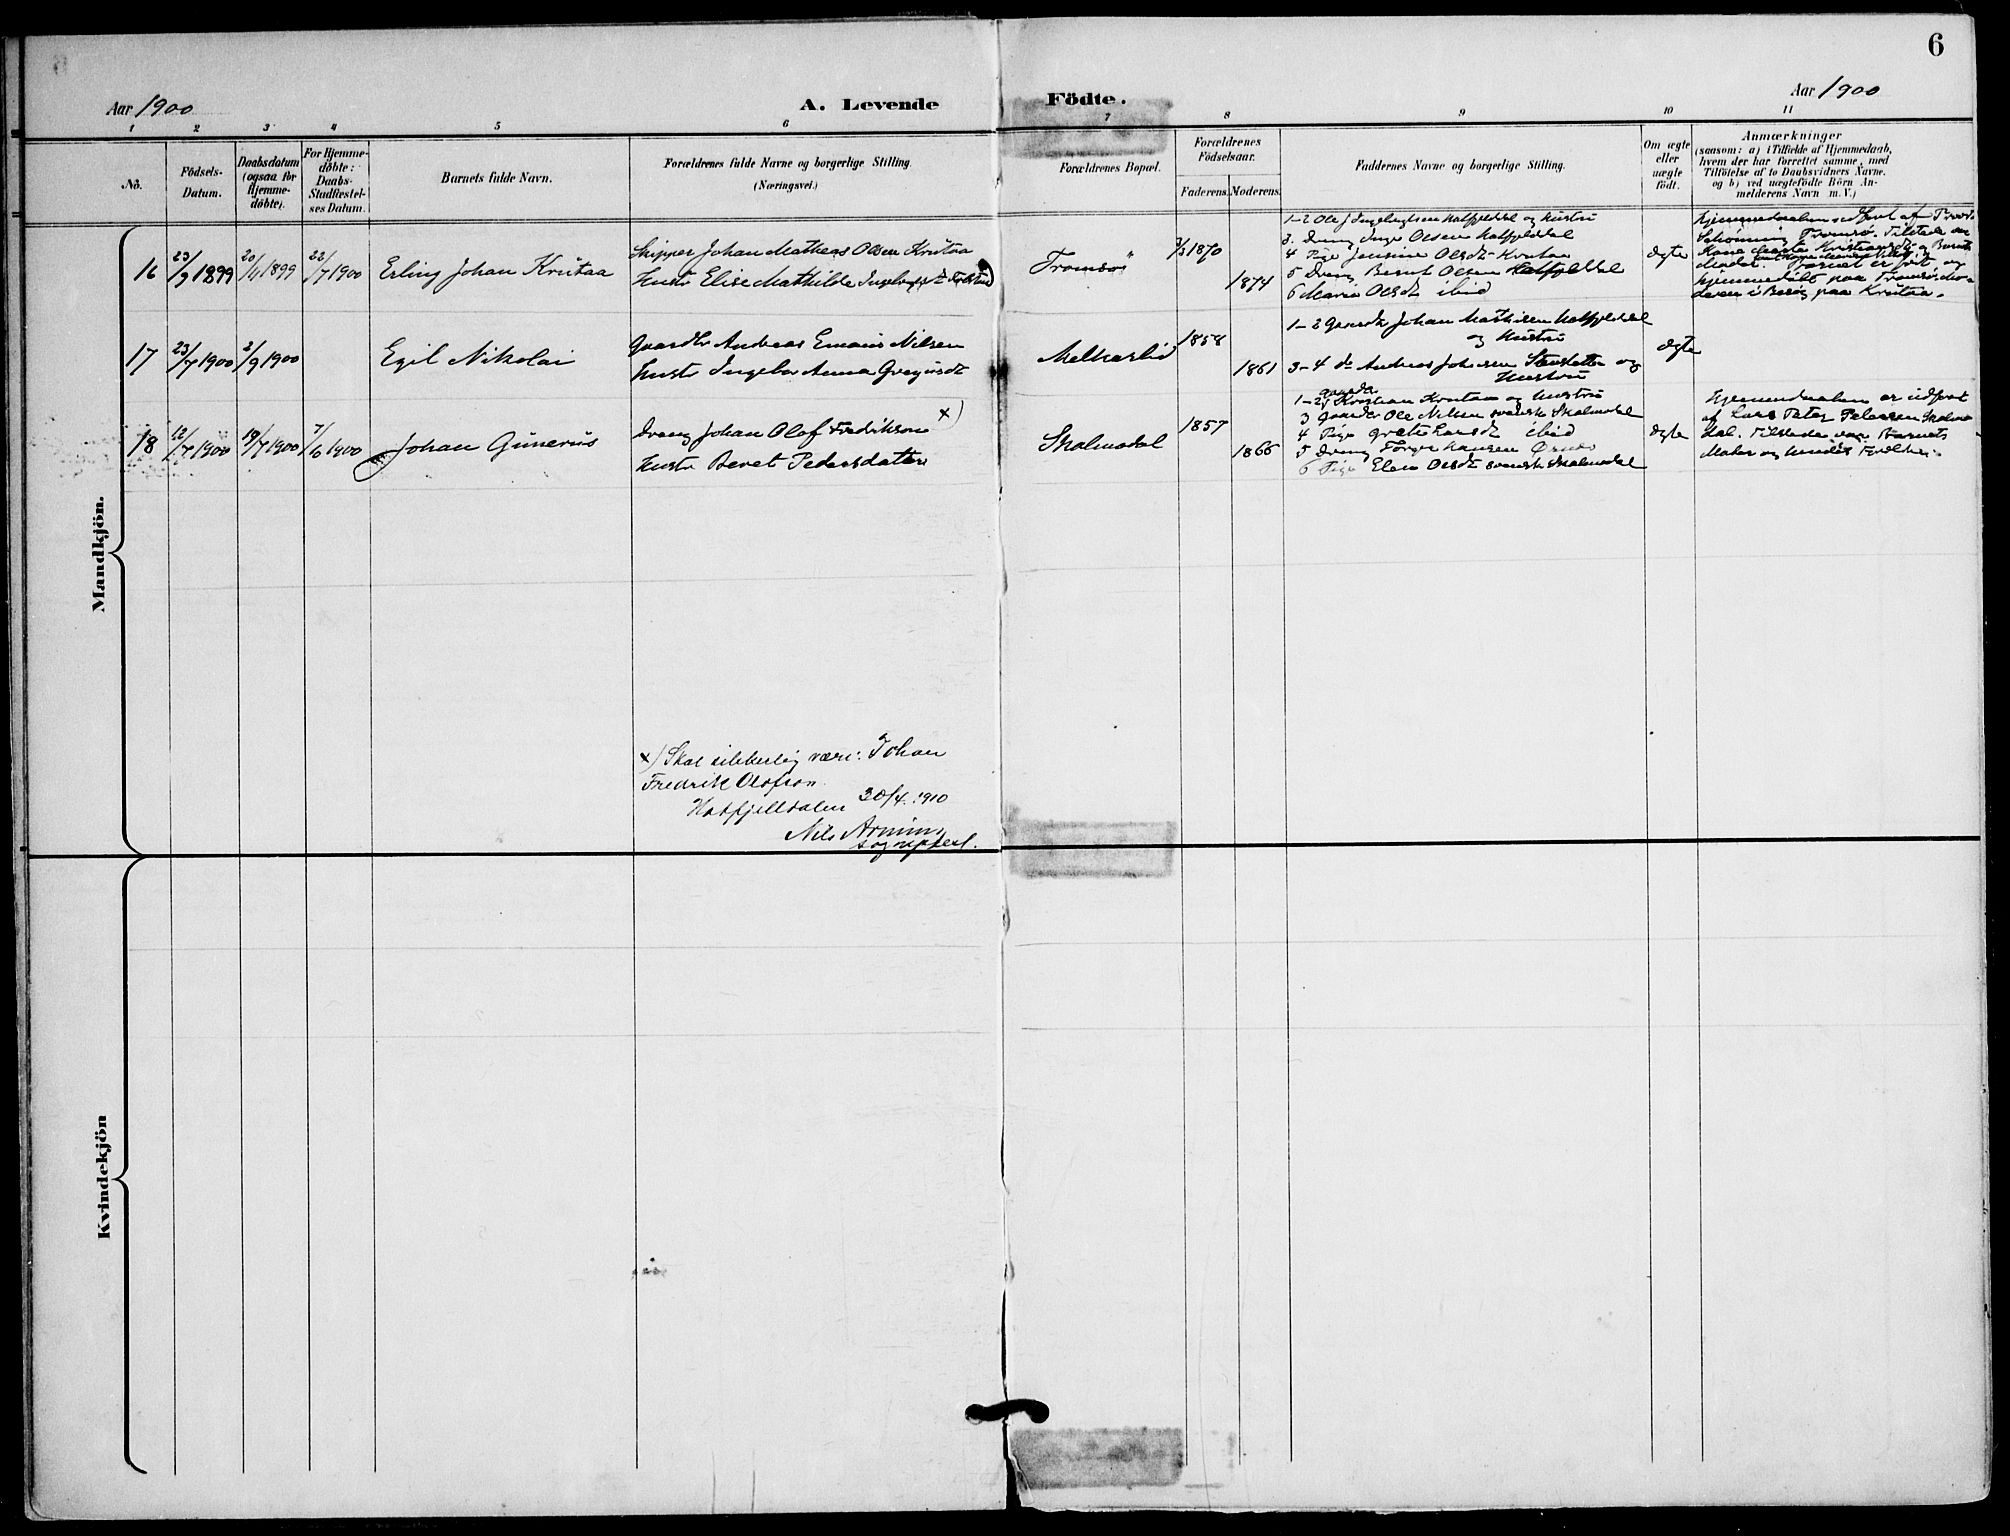 6
Aar 1900
A. Levende Födte.
Aar 1900
1 2 3 4 5 6 7 8 9 10 11
No.
Födsels-
Datum.
Daabsdatum
(ogsaa for
Hjemme-
döbte).
For Hjemme-
döbte:
Daabs-
Stadfæstel-
ses Datum.
Barnets fulde Navn.
Forældrenes fulde Navne og borgerlige Stilling.
(Næringsvei.)
Forældrenes Bopæl.
Forældrenes
Födselsaar.
Faderens. Moderens.
Faddernes Navne og borgerlige Stilling.
Om ægte
eller
uægte
födt.
Anmærkninger
(saasom: a) i Tilfælde af Hjemmedaab,
hvem der har forrettet samme, med
Tilföielse af to Daabsvidners Navne.
og b) ved uægtefödte Börn An-
melderens Navn m. V.)
Mandkjön.
16
23/9 1899
20/11 1899
22/7 1900
Erling Johan Krutaa
Skipper Johan Matheas Olsen Krutaa
Hustr Elise Mathilde
Tromsö
1870
1874
1-2 Ole J Ingebrigtsen Hatfjelddal og Hustru
3. Dreng Inge Olsen Hatfjelddal
4 Pige Jensine Olsdt Krutaa
5 Dreng Bernt Olsen Hatfjelddal
6 Maria Olsdt ibid
ægte
Hjemmedaaben udført af
Schönning Tromsø. Tilstede var
Moder. Barnet er født og
hjemmedøbt paa Tromsø. Mo-
deren i Besøg paa Krutaa.
17
23/7 1900
2/9 1900
Egil Nikolai
Gaardbr Andreas Emaus Nilsen
Hustr Ingebor Anna Gregusdt
Melkarlid
1858
1861
1-2 Gaardbr Johan Mathisen Hatfjelddal
og Hustru
3-4 do Andreas Johnsen Stensletten og
Hustru
ægte
18
12/7 1900
19/7 1900
7/10 1900
Johan Gunerius
Dreng Johan Olof Fredrikson x)
Hustr Beret Pedersdatter
Skalmodal
1857
1866
1-2 Gaardbr Kristian Krutaa og Hustru
3 Gaardbr Ole Nilsen svensk Skalmodal
4 Pige Grete Larsdt ibid
5 Dreng Hansen
6 Pige Elen Olsdt svensk Skalmodal
ægte
Hjemmedaaben er udført
af Lars Peter Petersen Skalmo-
dal. Tilstede var Barnets
Moder og hendes Forældre.
x) Skal sikkerlig være: Johan
Fredrik Olofson.
Hatfjelldalen 30/4. 1910
Nils Arning
sogneprest.
Kvindekjön